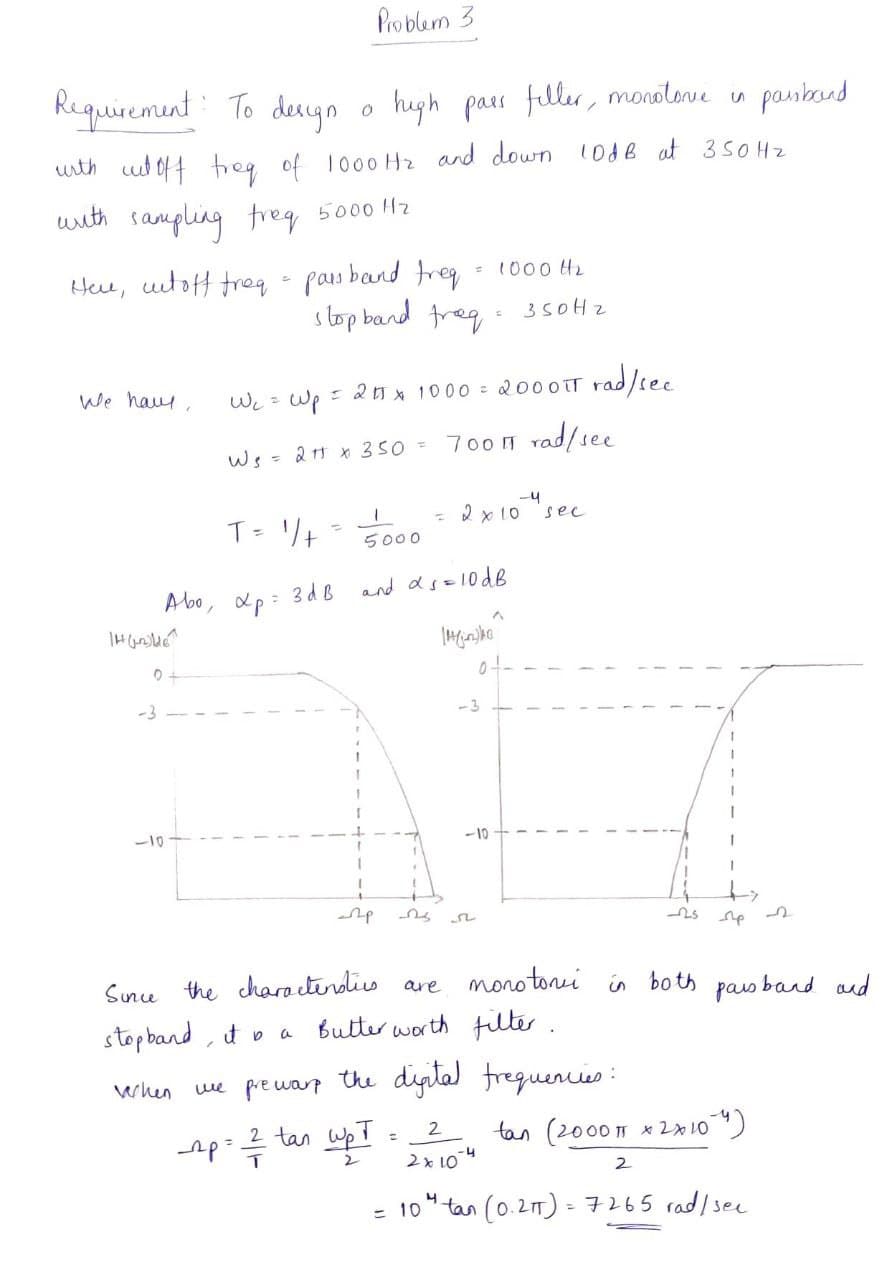 Problem 3
Requirement : To design a high pass filter, monotonic in passband
with cutoff freq of 1000 Hz and down 10dB at 350 Hz
with sampling freq 5000 Hz
Here, cutoff freq = passband freq = 1000 Hz
stopband freq = 350Hz
We have, ωc = ωp = 2π × 1000 = 2000π rad/sec
ωs = 2π × 350 = 700π rad/sec
T = 1/f = 1/5000 = 2 × 10⁻⁴ sec
Also, αp = 3dB and αs = 10dB
|H(jΩ)|dB |H(jΩ)|dB
0 0
-3 -3
-10 -10
Ωp Ωs Ω Ωs Ωp Ω
Since the characteristics are monotonic in both passband and
stopband, it is a Butterworth filter.
When we prewarp the digital frequencies :
Ωp = 2/T tan ωpT/2 = 2/(2×10⁻⁴) tan (2000π × 2×10⁻⁴)/2
= 10⁴ tan (0.2π) = 7265 rad/sec